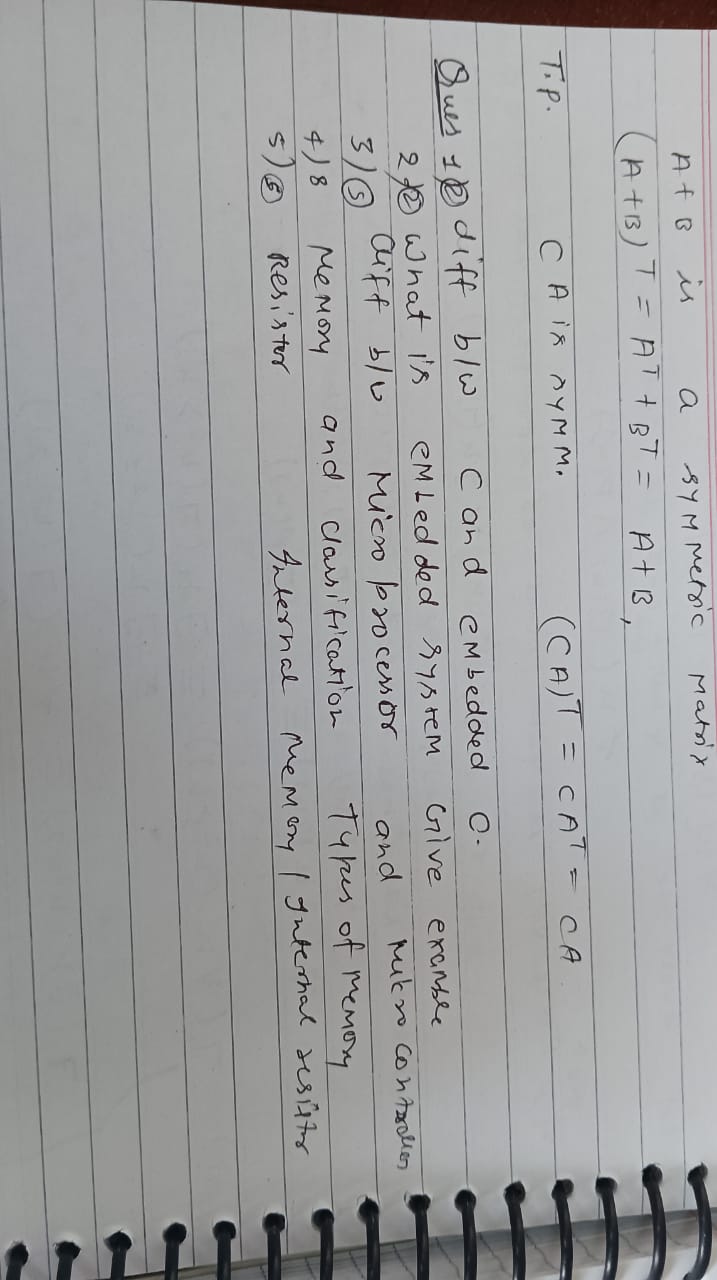 A + B is a symmetric Matrix
(A+B)T = AT + BT = A+B,
T.p. CA is symm. (CA)T = CAT = CA
Ques 1) diff b/w C and embedded C.
2) What is embedded system Give example
3) diff b/w Microprocessor and Mikro controller
4) 8 Memory and classification Types of Memory
5) Resistor Internal Memory / Internal resistor